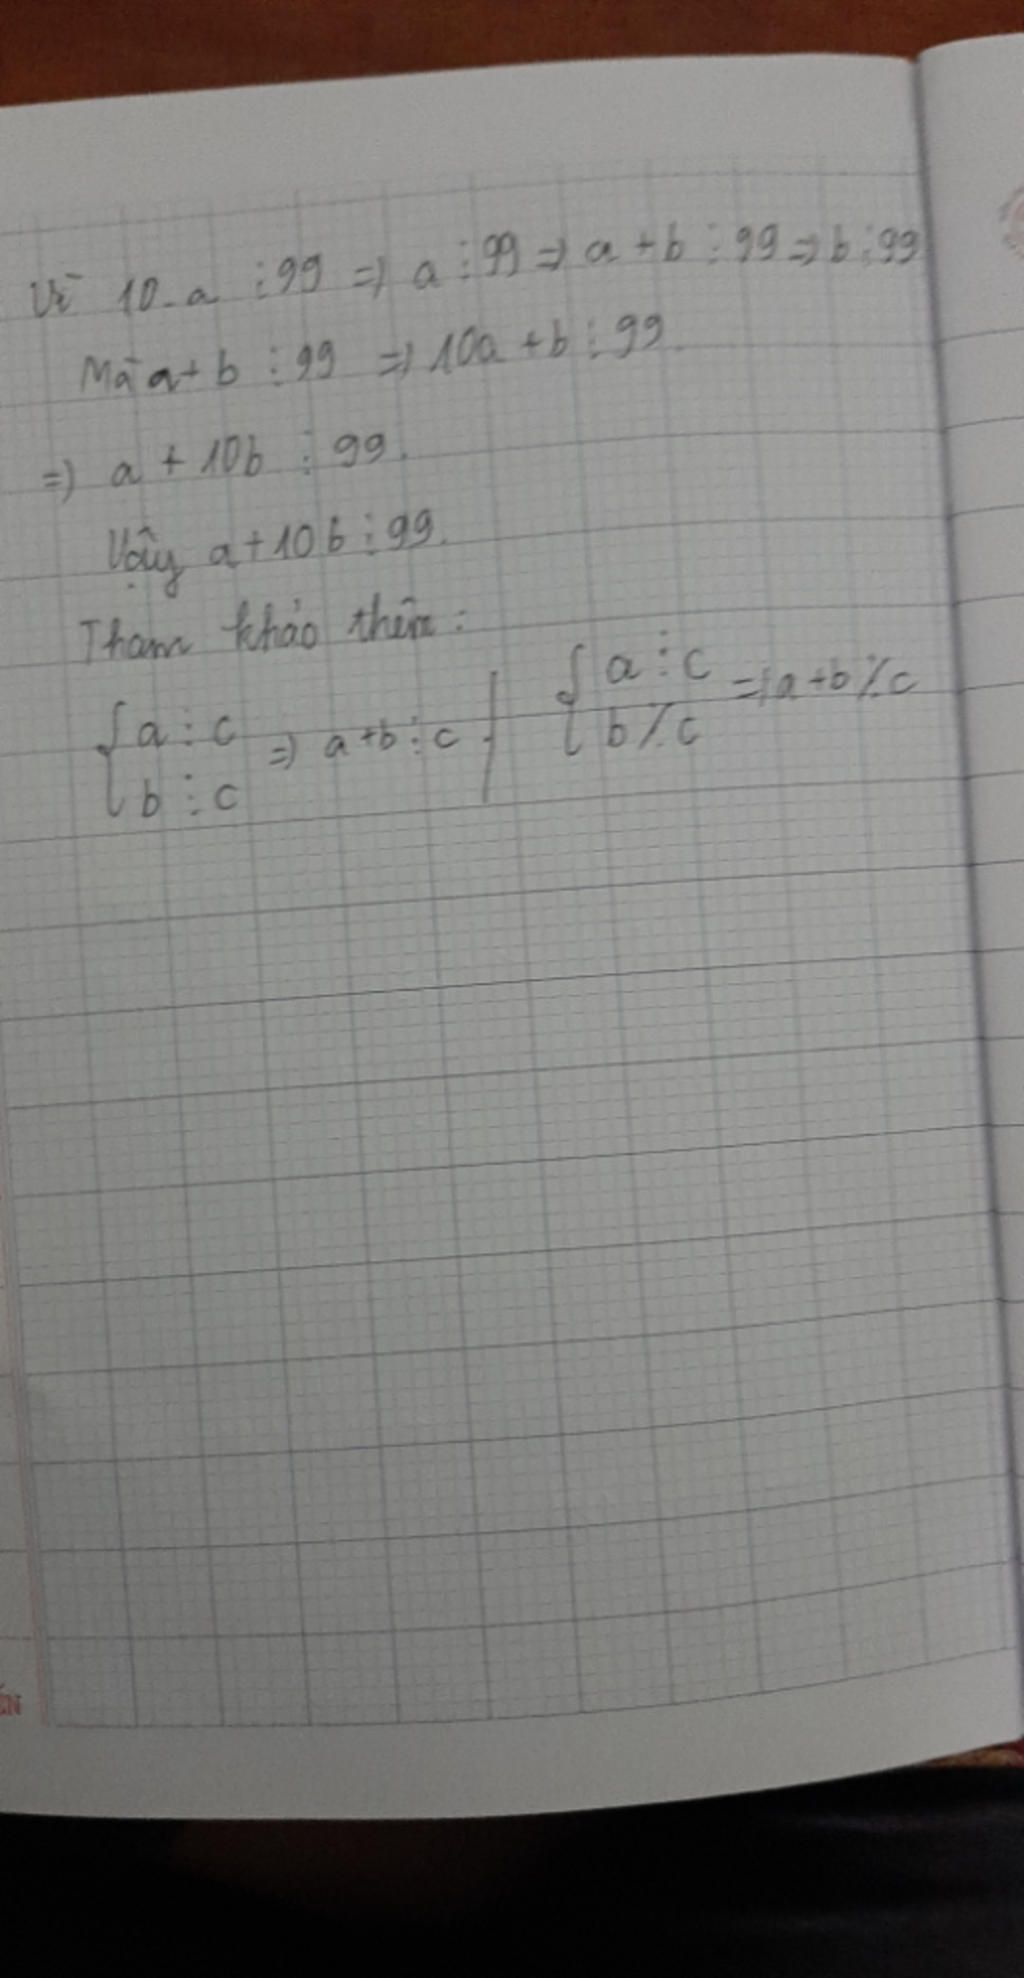 Vì 10.a ⋮ 99 => a ⋮ 99 => a + b ⋮ 99 => b ⋮ 99
Mà a + b ⋮ 99 => 10a + b ⋮ 99.
=> a + 10b ⋮ 99.
Vậy a + 10b ⋮ 99.
Tham khảo thêm:
{ a ⋮ c
b ⋮ c => a + b ⋮ c
{ a ⋮ c
b ⋮̸ c => a + b ⋮̸ c